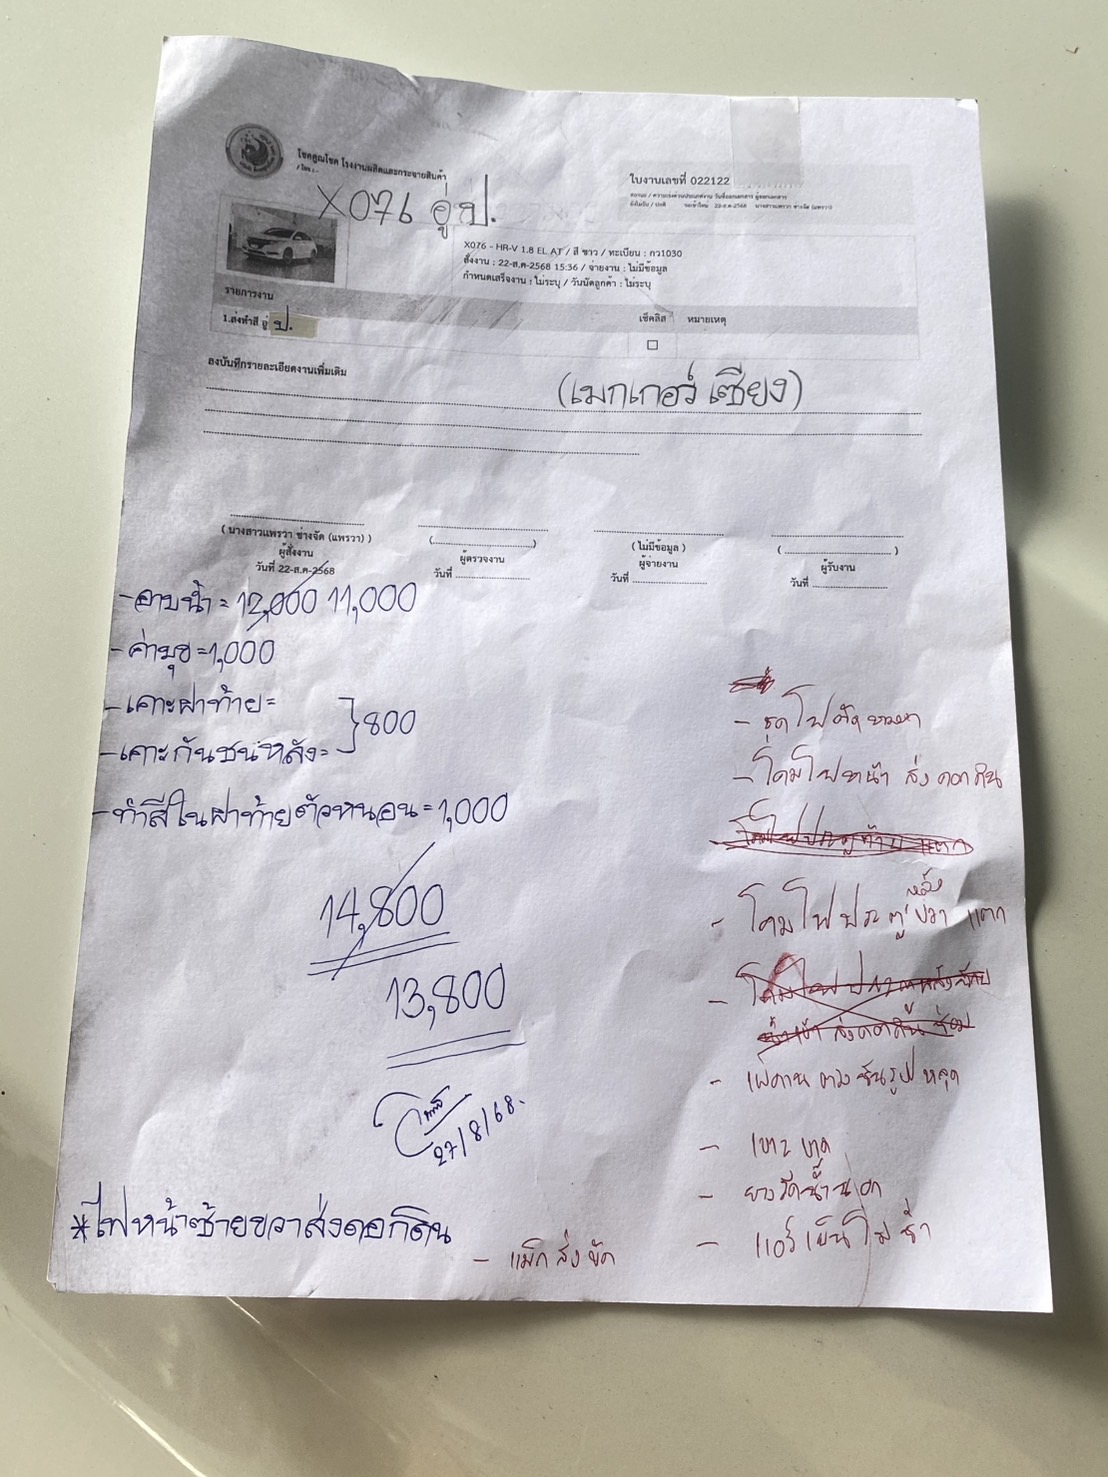 โชคคูณโชค โรงงานผลิตและกระจายสินค้า
X076 อู่ ป.
ใบงานเลขที่ 022122
X076 - HR-V 1.8 EL AT / สี ขาว / ทะเบียน : กว1030
สั่งงาน : 22-ส.ค-2568 15:36 / จ่ายงาน : ไม่มีข้อมูล
กำหนดเสร็จงาน : ไม่ระบุ / วันนัดลูกค้า : ไม่ระบุ
รายการงาน เช็คลิส หมายเหตุ
1.ส่งทำสี อู่ ป.
ลงบันทึกรายละเอียดงานเพิ่มเติม
(เมกเกอร์ เซียง)
( นางสาวแพรวา ช่างจัด (แพรวา) )
ผู้สั่งงาน
วันที่ 22-ส.ค-2568
ผู้ตรวจงาน
วันที่
( ไม่มีข้อมูล )
ผู้จ่ายงาน
วันที่
ผู้รับงาน
วันที่
-อาบน้ำ = 12,000 11,000
-ค่ามุข =1,000
-เคาะฝาท้าย=
-เคาะกันชนหลัง=
800
-ทำสีในฝาท้ายตัวหนอน =1,000
14,800
13,800
27/8/68.
*ไฟหน้าซ้ายขวาส่งดอกดิน
- โคมไฟหน้า ส่ง ดอกดิน
- โคมไฟประตูหลังขวา แตก
- เพดาน ตรง ซันรูป หลุด
- เบาะ ขาด
- ยางรีดน้ำนอก
- แอร์ เย็นไม่ ฉ่ำ
- แม็ก ส่ง ขัด